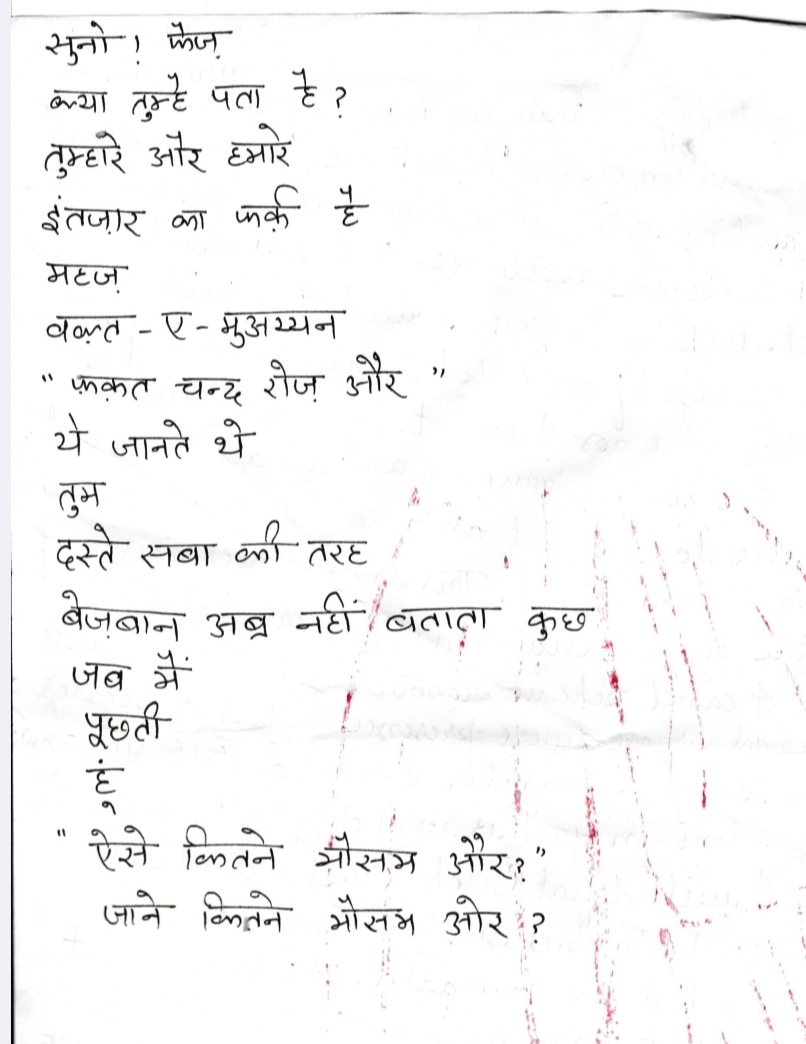 सुनो! फैज़
क्या तुम्हे पता है?
तुम्हारे और हमारे
इंतज़ार का फर्क़ है
महज़
वक़्त - ए - मुअय्यन
" फ़क़त चन्द रोज़ और "
ये जानते थे
तुम
दस्ते सबा की तरह
बेज़बान अब्र नहीं बताता कुछ
जब मैं
पूछती
हूं
" ऐसे कितने मौसम और?"
जाने कितने मौसम और?